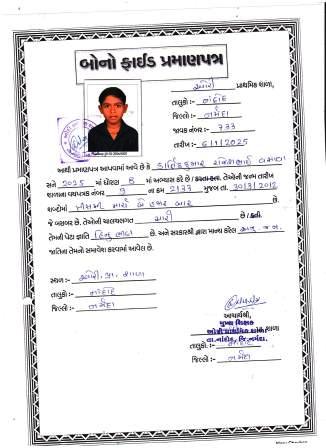 બોનો ફાઈડ પ્રમાણપત્ર
ઓરી પ્રાથમિક શાળા,
તાલુકો :- નાંદોદ
જિલ્લો :- નર્મદા
જાવક નંબર :- 733
તારીખ :- 6/1/2025
આથી પ્રમાણપત્ર આપવામાં આવે છે કે
સને 2025 માં ધોરણ 8 માં અભ્યાસ કરે છે / કરતા હતા. તેઓની જન્મ તારીખ
શાળાના વયપત્રક નંબર 9 ના ક્રમ 2133 મુજબ તા. 30/3/2012
શબ્દોમાં ત્રીસમી માર્ચ બે હજાર બાર
છે બરાબર છે. તેઓની ચાલચલગત સારી છે / હતી.
તેમની પેટા જ્ઞાતિ હિન્દુ છે. અને સરકારશ્રી દ્વારા માન્ય કરેલ અનુ. જ.ન.
જાતિના તેમનો સમાવેશ કરવામાં આવેલ છે.
સ્થળ :- ઓરી પ્રા. શાળા
તાલુકો :- નાંદોદ
જિલ્લો :- નર્મદા
આચાર્યશ્રી,
મુખ્ય શિક્ષક
ઓરી પ્રાથમિક શાળા શાળા
તા. નાંદોદ, જિ. નર્મદા.
તાલુકો :- નાંદોદ
જિલ્લો :- નર્મદા